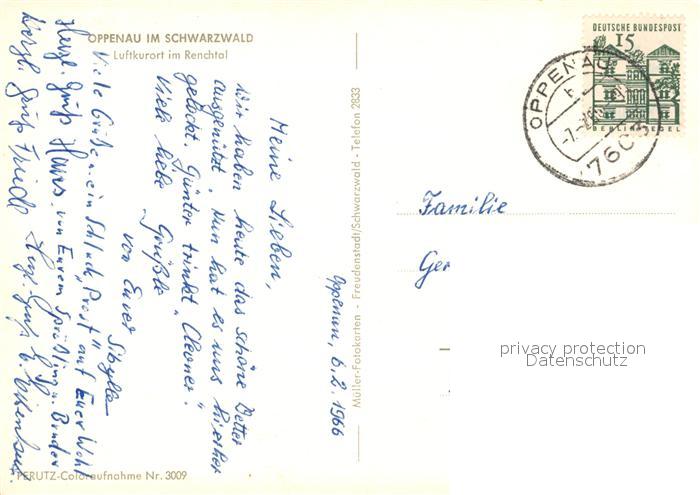 OPPENAU IM SCHWARZWALD
Luftkurort im Renchtal
DEUTSCHE BUNDESPOST
15
BERLIN TEGEL
OPPENAU
7603
Oppenau, 6.2.1966
Meine Lieben,
wir haben heute das schöne Wetter
ausgenützt, nun hat es uns hierher
gelockt. Günter trinkt "Clevner".
Viele liebe Grüße
von Eurer Sibylle
Viele Grüße, ein Schluck "Prost" auf Euer Wohl
Herzl. Gruß Hans, von Eurem Sprößling u. Bruder
Herzl. Gruß Friedl
Familie
Ger
Müller-Fotokarten - Freudenstadt/Schwarzwald - Telefon 2833
PERUTZ-Coloraufnahme Nr. 3009
privacy protection
Datenschutz